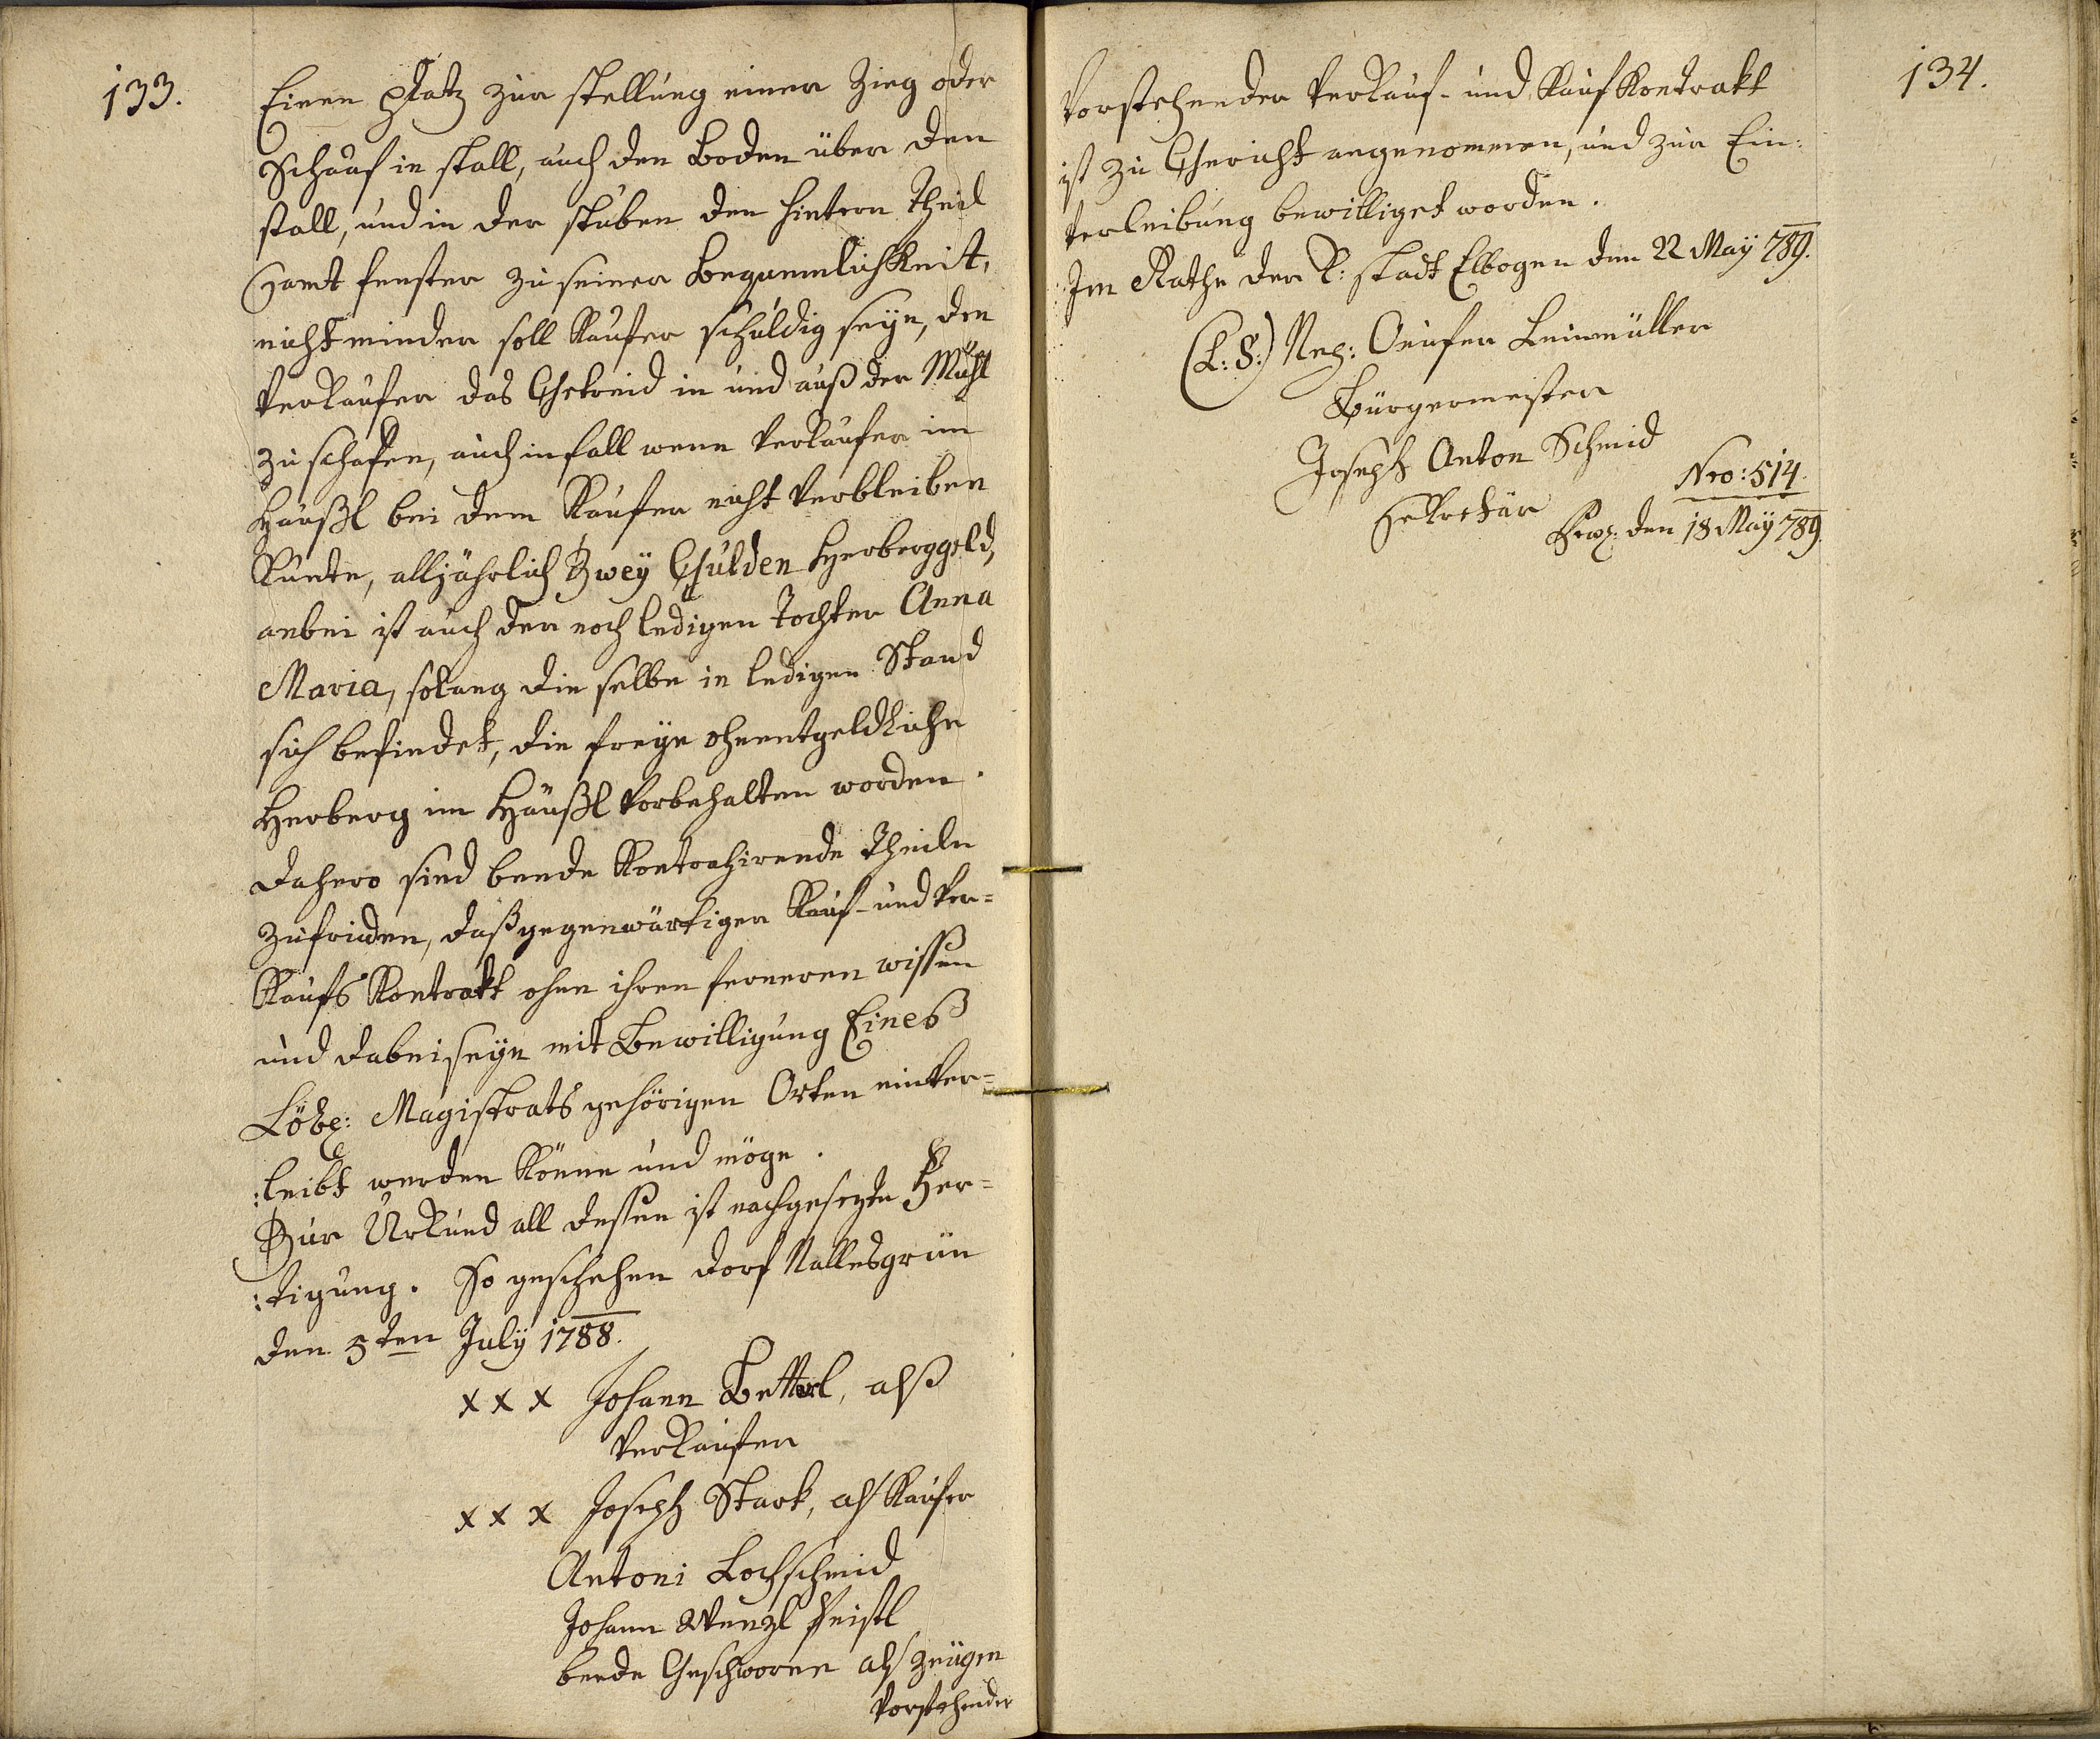 133.
Einen Platz zur stellung einer Zieg oder
Schaaf in stall, auch den Boden über den
stall, und in der stuben den hintern Theil
samt fenster zu seiner Bequemlichkeit,
nicht minder soll Kaufer schuldig seyn, den
Verkaufer das Getreid in und auß der Mühl
zu schafen, auch in fall wenn Verkaufer im
Häußl bei dem Kaufer nicht Verbleiben
Kunte, alljährlich Zweÿ Gulden Herberggeld,
anbei ist auch der noch ledigen Tochter Anna
Maria, solang die selbe in ledigen Stand
sich befindet, die freÿe ohnentgeldliche
Herberg im Häußl Vorbehalten worden.
Dahero sind beede Kontrahirende Theile
zufrieden, daß gegenwärtiger Kauf- und Ver=
Kaufs Kontrakt ohne ihren ferneren wissen
und dabeiseÿn mit Bewilligung Eines
Löbl: Magistrats gehörigen Orten einver=
:leibt werden Könne und möge.
Zur Urkund all dessen ist nachgesezte Fer=
:tigung. So geschehen Dorf Nallesgrün
den 5ten July 1788.
x x x Johann Betterl, alß
Verkaufer
x x x Joseph Stark, als Kaufer
Antoni Lochschmid
Johann Wenzl Feistl
beede Geschworne als Zeugen
Vorstehender
134.
Vorstehender Verkauf- und Kauf Kontrakt
ist zu Gericht angenommen, und zur Ein:
Verleibung bewilliget worden.
Im Rathe der K: stadt Elbogen den 22 Maÿ 789.
(L: S:) Leinmüller
Bürgermeister
Joseph Anton Schmid
Sekretär
Nro: 514.
den 18 Maÿ 789.